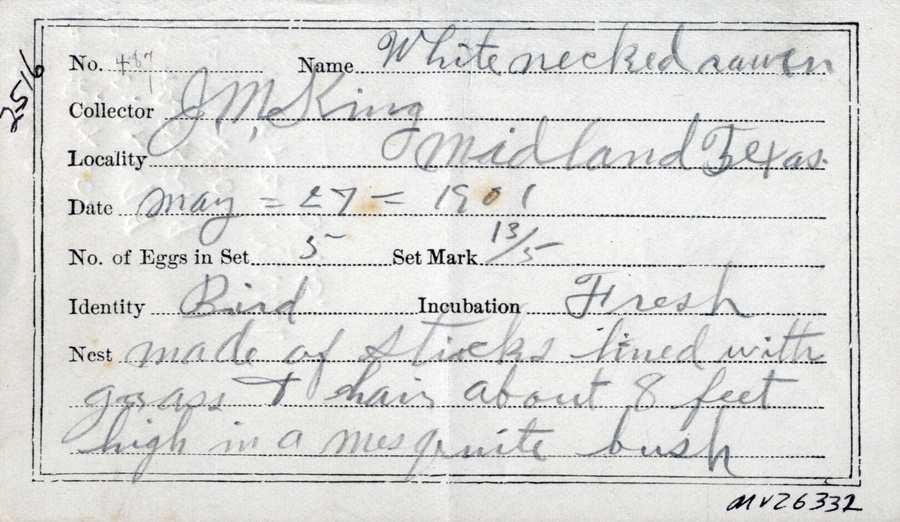 No. 487 Name White necked raven
Collector J M, King
Locality Midland Texas.
Date may = 27 = 1901
No. of Eggs in Set 5 Set Mark 13/5
Identity Bird Incubation Fresh
Nest made of sticks lined with
grass & hair about 8 feet
high in a mesquite bush
2516
MVZ6332